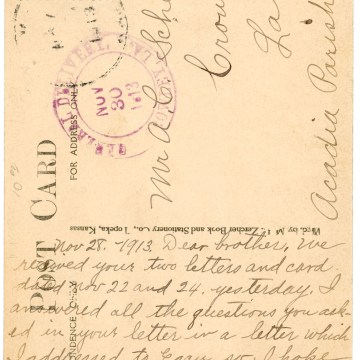 Mr A.C. Sch
Crow
La
Acadia Parish
GENERAL DELIVERY
NOV
30
1913
LA.
POST CARD
FOR ADDRESS ONLY
Mfd. by M Zercher Book and Stationery Co., Topeka, Kansas
Nov 28. 1913. Dear brother, We
received your two letters and card
dated Nov 22 and 24. yesterday. I
answered all the questions you ask-
ed in your letter in a letter which
I addressed to so I hope